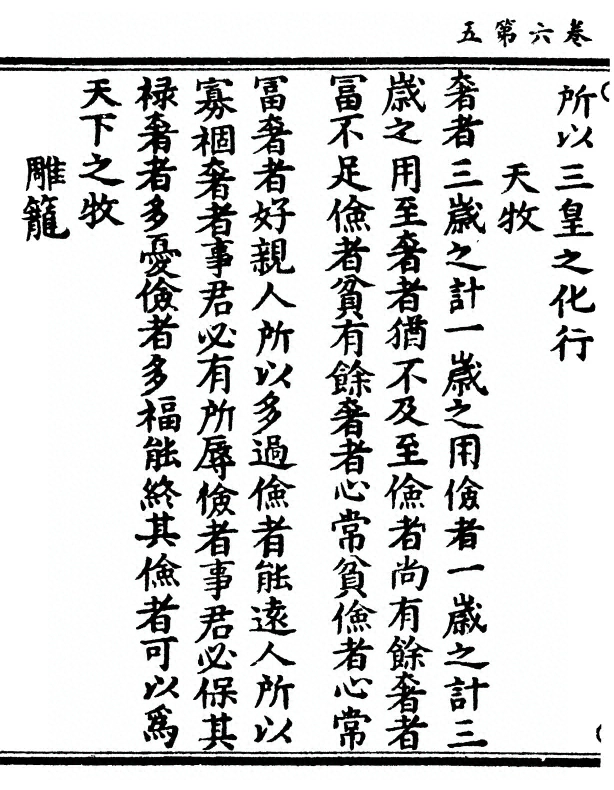 卷六第五
所以三皇之化行
天牧
奢者三歲之計一歲之用儉者一歲之計三
歲之用至奢者猶不及至儉者尚有餘奢者
冨不足儉者貧有餘奢者心常貧儉者心常
冨奢者好親人所以多過儉者能遠人所以
寡禍奢者事君必有所辱儉者事君必保其
禄奢者多憂儉者多福能終其儉者可以爲
天下之牧
雕籠